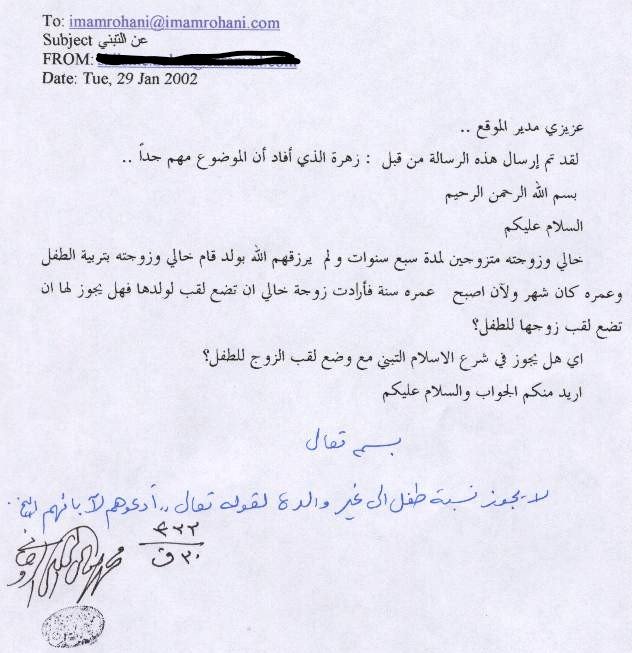 To: imamrohani@imamrohani.com
Subject عن التبني
FROM:
Date: Tue, 29 Jan 2002
عزيزي مدير الموقع ..
لقد تم إرسال هذه الرسالة من قبل : زهرة الذي أفاد أن الموضوع مهم جداً ..
بسم الله الرحمن الرحيم
السلام عليكم
خالي وزوجته متزوجين لمدة سبع سنوات و لم يرزقهم الله بولد قام خالي وزوجته بتربية الطفل
وعمره كان شهر ولآن اصبح عمره سنة فأرادت زوجة خالي ان تضع لقب لولدها فهل يجوز لها ان
تضع لقب زوجها للطفل؟
اي هل يجوز في شرع الاسلام التبني مع وضع لقب الزوج للطفل؟
اريد منكم الجواب والسلام عليكم
بسمه تعالى
لا يجوز نسبة طفل الى غير والده لقوله تعالى ,, أدعوهم لآبائهم